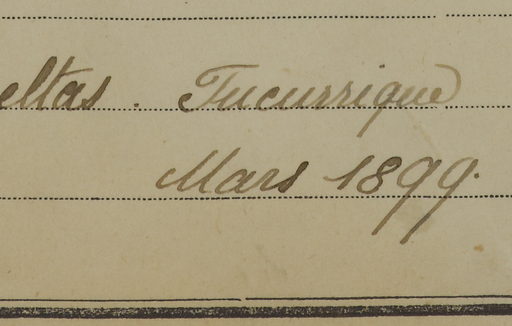 eltas. Tucurrique
Mars 1899.